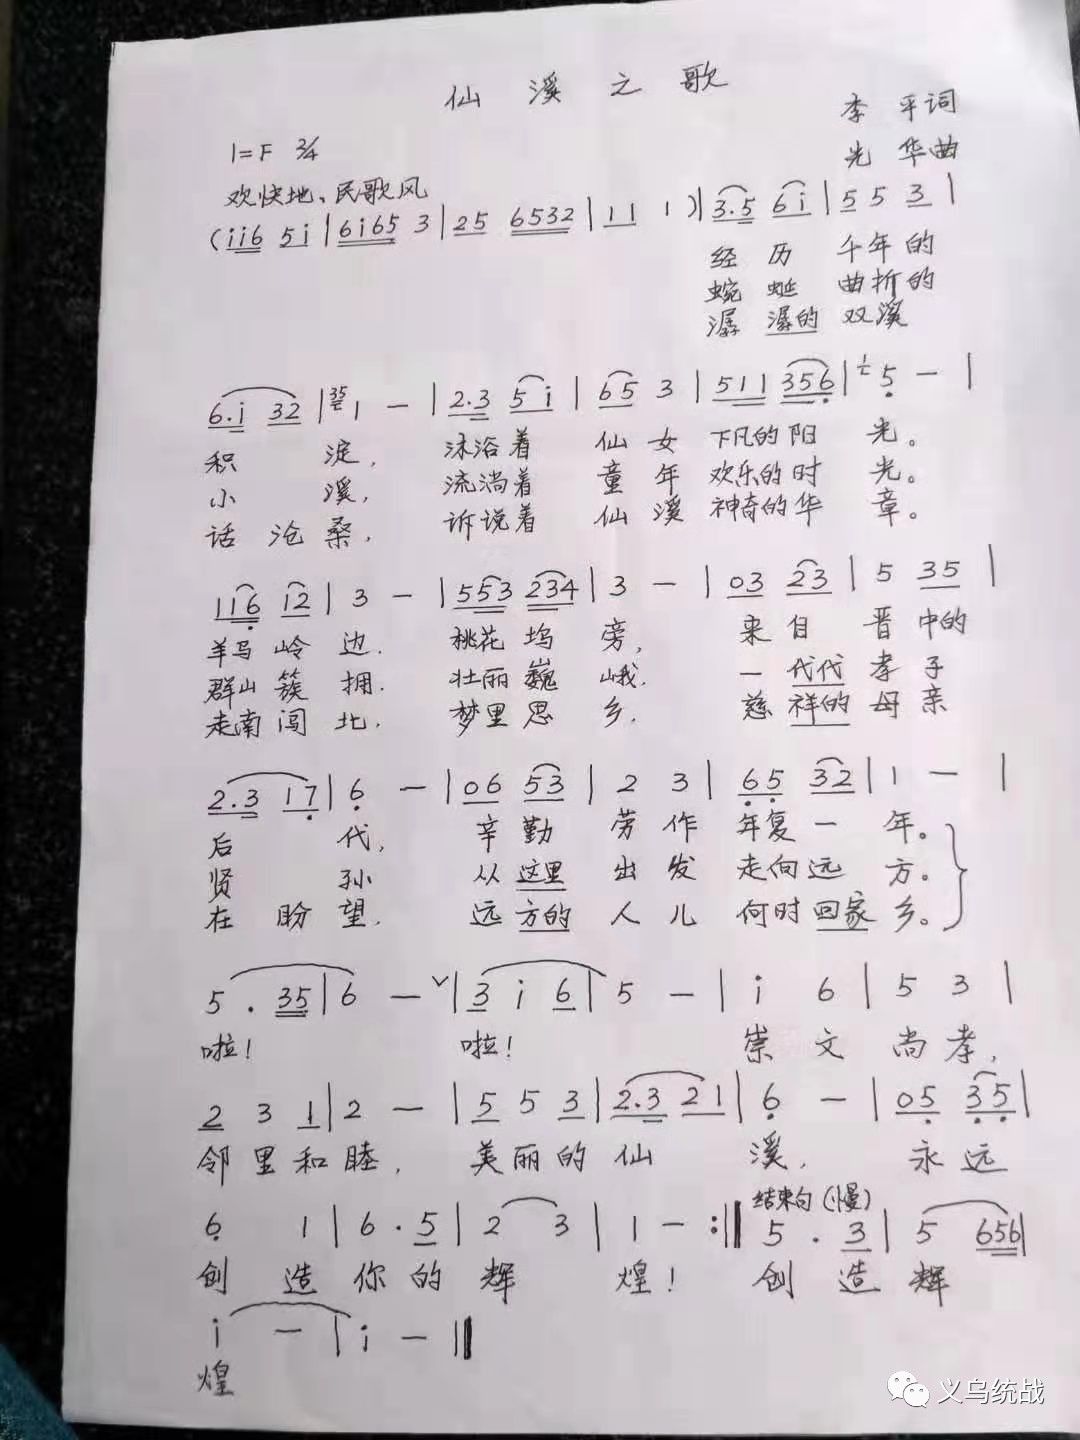 仙溪之歌
李平词
1=F 2/4
光华曲
欢快地、民歌风
(i i 6 5 i | 6 i 6 5 3 | 2 5 6 5 3 2 | 1 1 1 ) | 3 . 5 6 i | 5 5 3 |
经历千年的
蜿蜒曲折的
潺潺的双溪
6 . i 3 2 | 35 1 — | 2 . 3 5 i | 6 5 3 | 5 1 1 3 5 6 | 5 — |
积淀,沐浴着仙女下凡的阳光。
小溪,流淌着童年欢乐的时光。
话沧桑,诉说着仙溪神奇的华章。
1 1 6 1 2 | 3 — | 5 5 3 2 3 4 | 3 — | 0 3 2 3 | 5 3 5 |
羊马岭边.桃花坞旁,来自晋中的
群山簇拥.壮丽巍峨.一代代孝子
走南闯北.梦里思乡,慈祥的母亲
2 . 3 1 7 | 6 — | 0 6 5 3 | 2 3 | 6 5 3 2 | 1 — |
后代,辛勤劳作年复一年。
贤孙从这里出发走向远方。
在盼望.远方的人儿何时回家乡。
5 . 3 5 | 6 — ∨ | 3 i 6 | 5 — | i 6 | 5 3 |
啦!啦!崇文尚孝,
2 3 1 | 2 — | 5 5 3 | 2 . 3 2 1 | 6 — | 0 5 3 5 |
邻里和睦,美丽的仙溪,永远
结束句(慢)
6 1 | 6 . 5 | 2 3 | 1 — :‖ 5 . 3 | 5 6 5 6 |
创造你的辉煌!创造辉
i — | i — ‖
煌
义乌统战